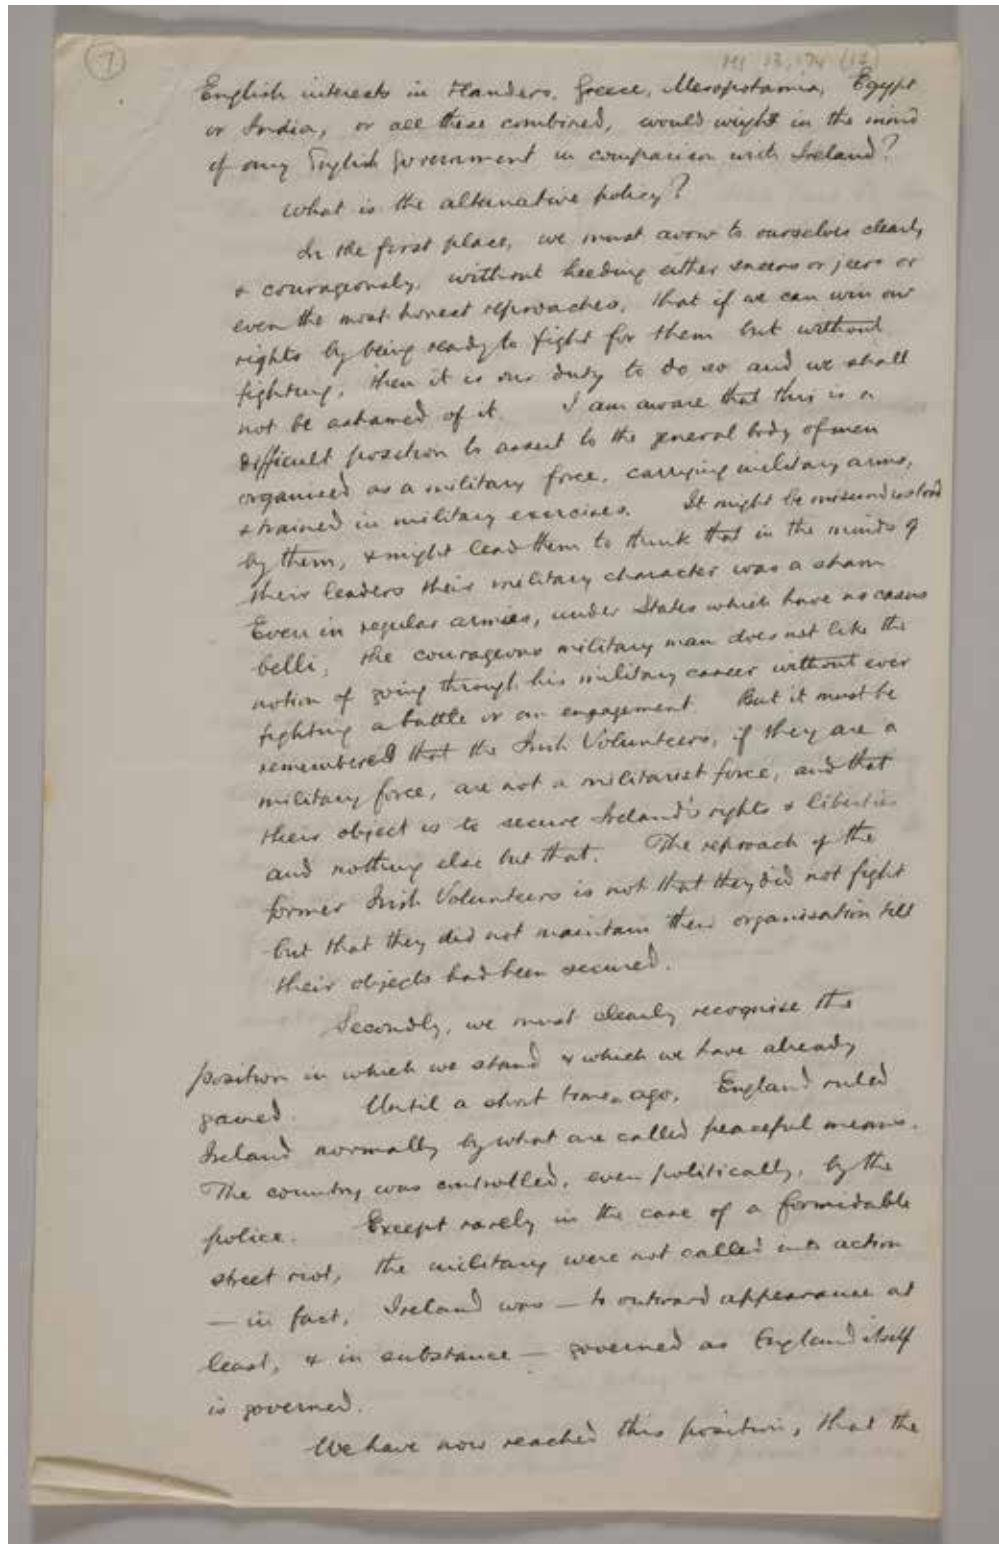 7
MS 13,174 (12)
English interests in Flanders, Greece, Mesopotamia, Egypt
or India, or all these combined, would weigh in the mind
of any English Government in comparison with Ireland?
What is the alternative policy?
In the first place, we must avow to ourselves clearly
& courageously, without heeding either sneers or jeers or
even the most honest reproaches, that if we can win our
rights by being ready to fight for them but without
fighting, then it is our duty to do so and we shall
not be ashamed of it. I am aware that this is a
difficult position to assert to the general body of men
organised as a military force, carrying military arms,
& trained in military exercises. It might be misunderstood
by them, & might lead them to think that in the minds of
their leaders their military character was a sham.
Even in regular armies, under States which have no casus
belli, the courageous military man does not like the
notion of going through his military career without ever
fighting a battle or an engagement. But it must be
remembered that the Irish Volunteers, if they are a
military force, are not a militarist force, and that
their object is to secure Ireland's rights & liberties
and nothing else but that. The reproach of the
former Irish Volunteers is not that they did not fight
but that they did not maintain their organisation till
their objects had been secured.
Secondly, we must clearly recognise the
position in which we stand & which we have already
gained. Until a short time ago, England ruled
Ireland normally by what are called peaceful means.
The country was controlled, even politically, by the
police. Except rarely in the case of a formidable
street riot, the military were not called into action
— in fact, Ireland was — to outward appearance at
least, & in substance — governed as England itself
is governed.
We have now reached this position, that the